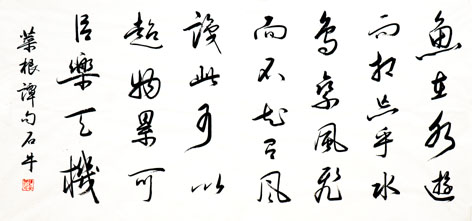 魚在水遊
而相忘乎水
鳥乘風飛
而不知有風
識此可以
超物累可
以樂天機
菜根譚句石牛